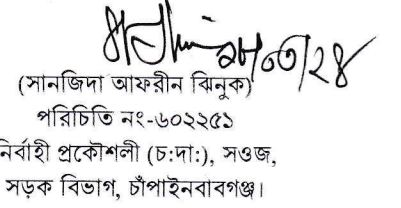 ২৮/০৩/২৪
(সানজিদা আফরীন ঝিনুক)
পরিচিতি নং-৬০২২৫১
নির্বাহী প্রকৌশলী (চ:দা:), সওজ,
সড়ক বিভাগ, চাঁপাইনবাবগঞ্জ।